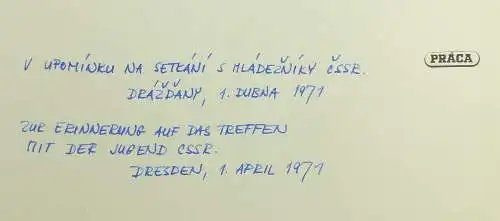 V UPOMÍNKU NA SETKÁNÍ S MLÁDEŽNÍKY ČSSR.
PRÁCA
DRÁŽĎANY, 1. DUBNA 1971
ZUR ERINNERUNG AUF DAS TREFFEN
MIT DER JUGEND CSSR.
DRESDEN, 1. APRIL 1971